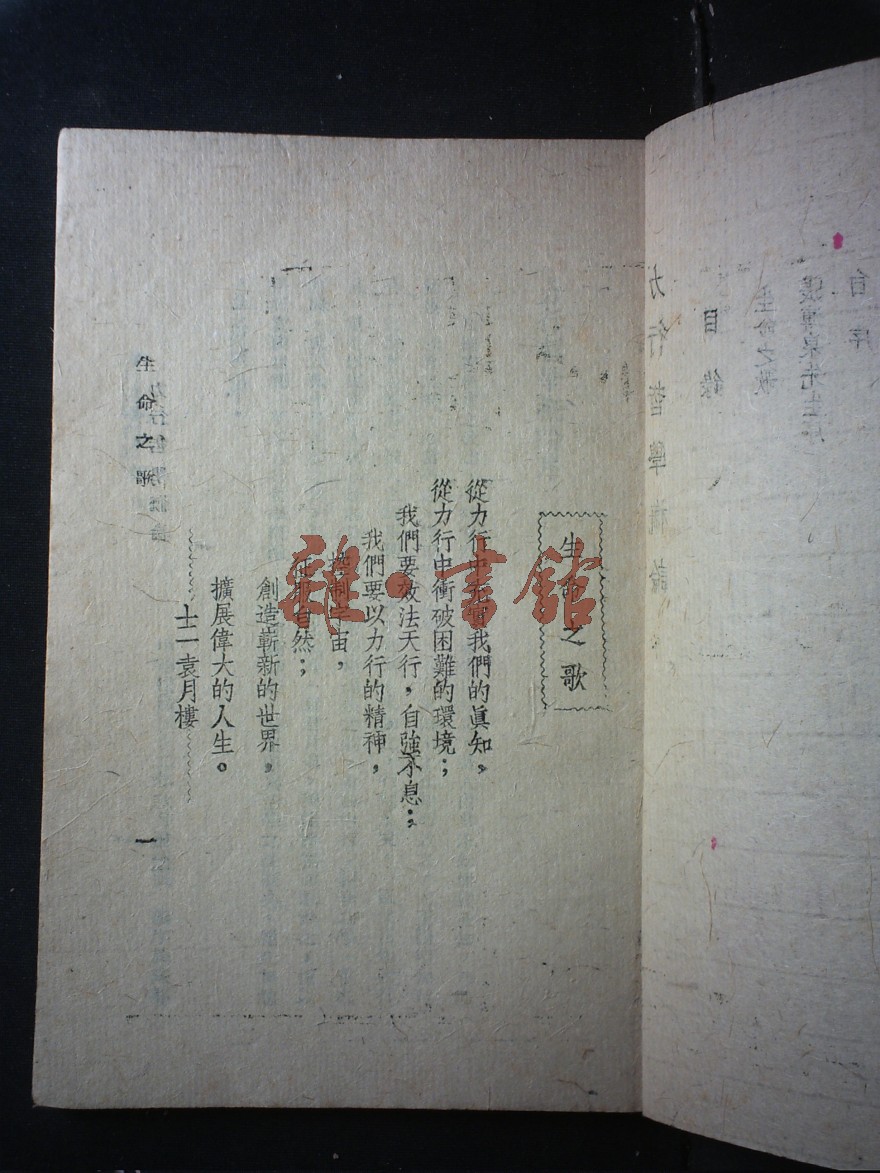 生命之歌
從力行中充實我們的眞知，
從力行中衝破困難的環境；
我們要效法天行，自強不息；
我們要以力行的精神，
控制宇宙，
征服自然；
創造嶄新的世界，
擴展偉大的人生。
士一袁月樓
生命之歌
一
自序
生命之歌
目錄
力行哲學概論
雜·書館